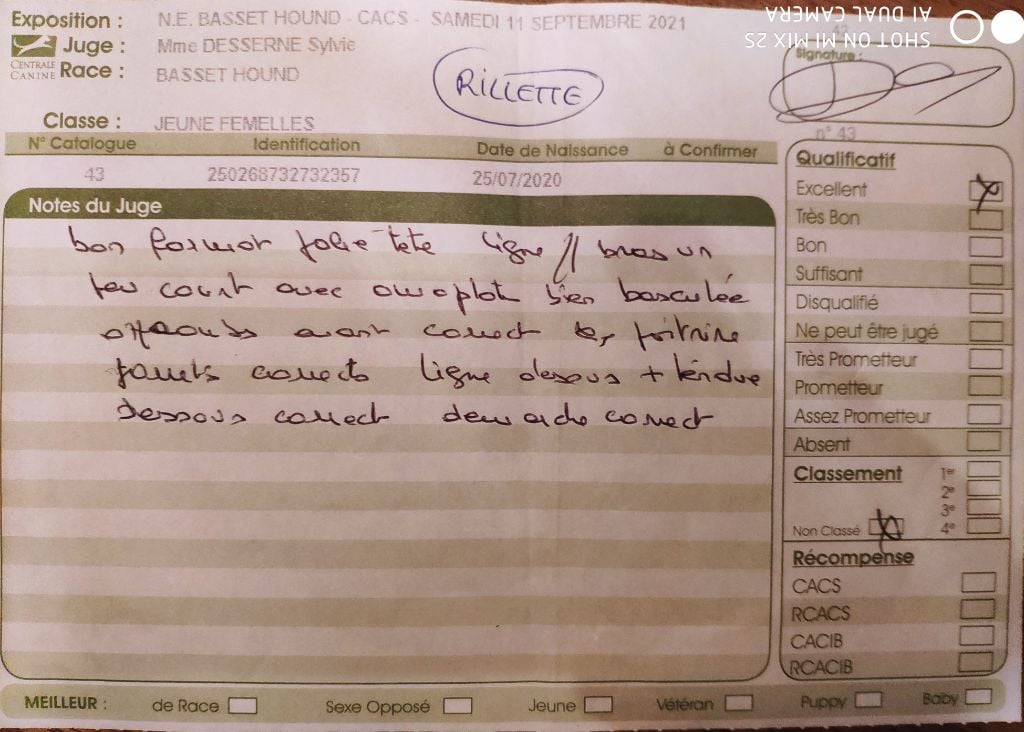 Exposition : N.E. BASSET HOUND - CACS - SAMEDI 11 SEPTEMBRE 2021
Juge : Mme DESSERNE Sylvie
CENTRALE CANINE
Race : BASSET HOUND
RILLETTE
Classe : JEUNE FEMELLES
N° Catalogue Identification Date de Naissance à Confirmer
43 250268732732357 25/07/2020
Notes du Juge
bon format jolie tête ligne // bras un
peu court avec omoplate bien basculée
avant correct poitrine
jarrets corrects ligne dessus + tendue
dessous correct démarche correct
SHOT ON MI MIX 2S
AI DUAL CAMERA
Signature :
n° 43
Qualificatif
Excellent
Très Bon
Bon
Suffisant
Disqualifié
Ne peut être jugé
Très Prometteur
Prometteur
Assez Prometteur
Absent
Classement 1er
2e
3e
Non Classé 4e
Récompense
CACS
RCACS
CACIB
RCACIB
MEILLEUR : de Race Sexe Opposé Jeune Vétéran Puppy Baby